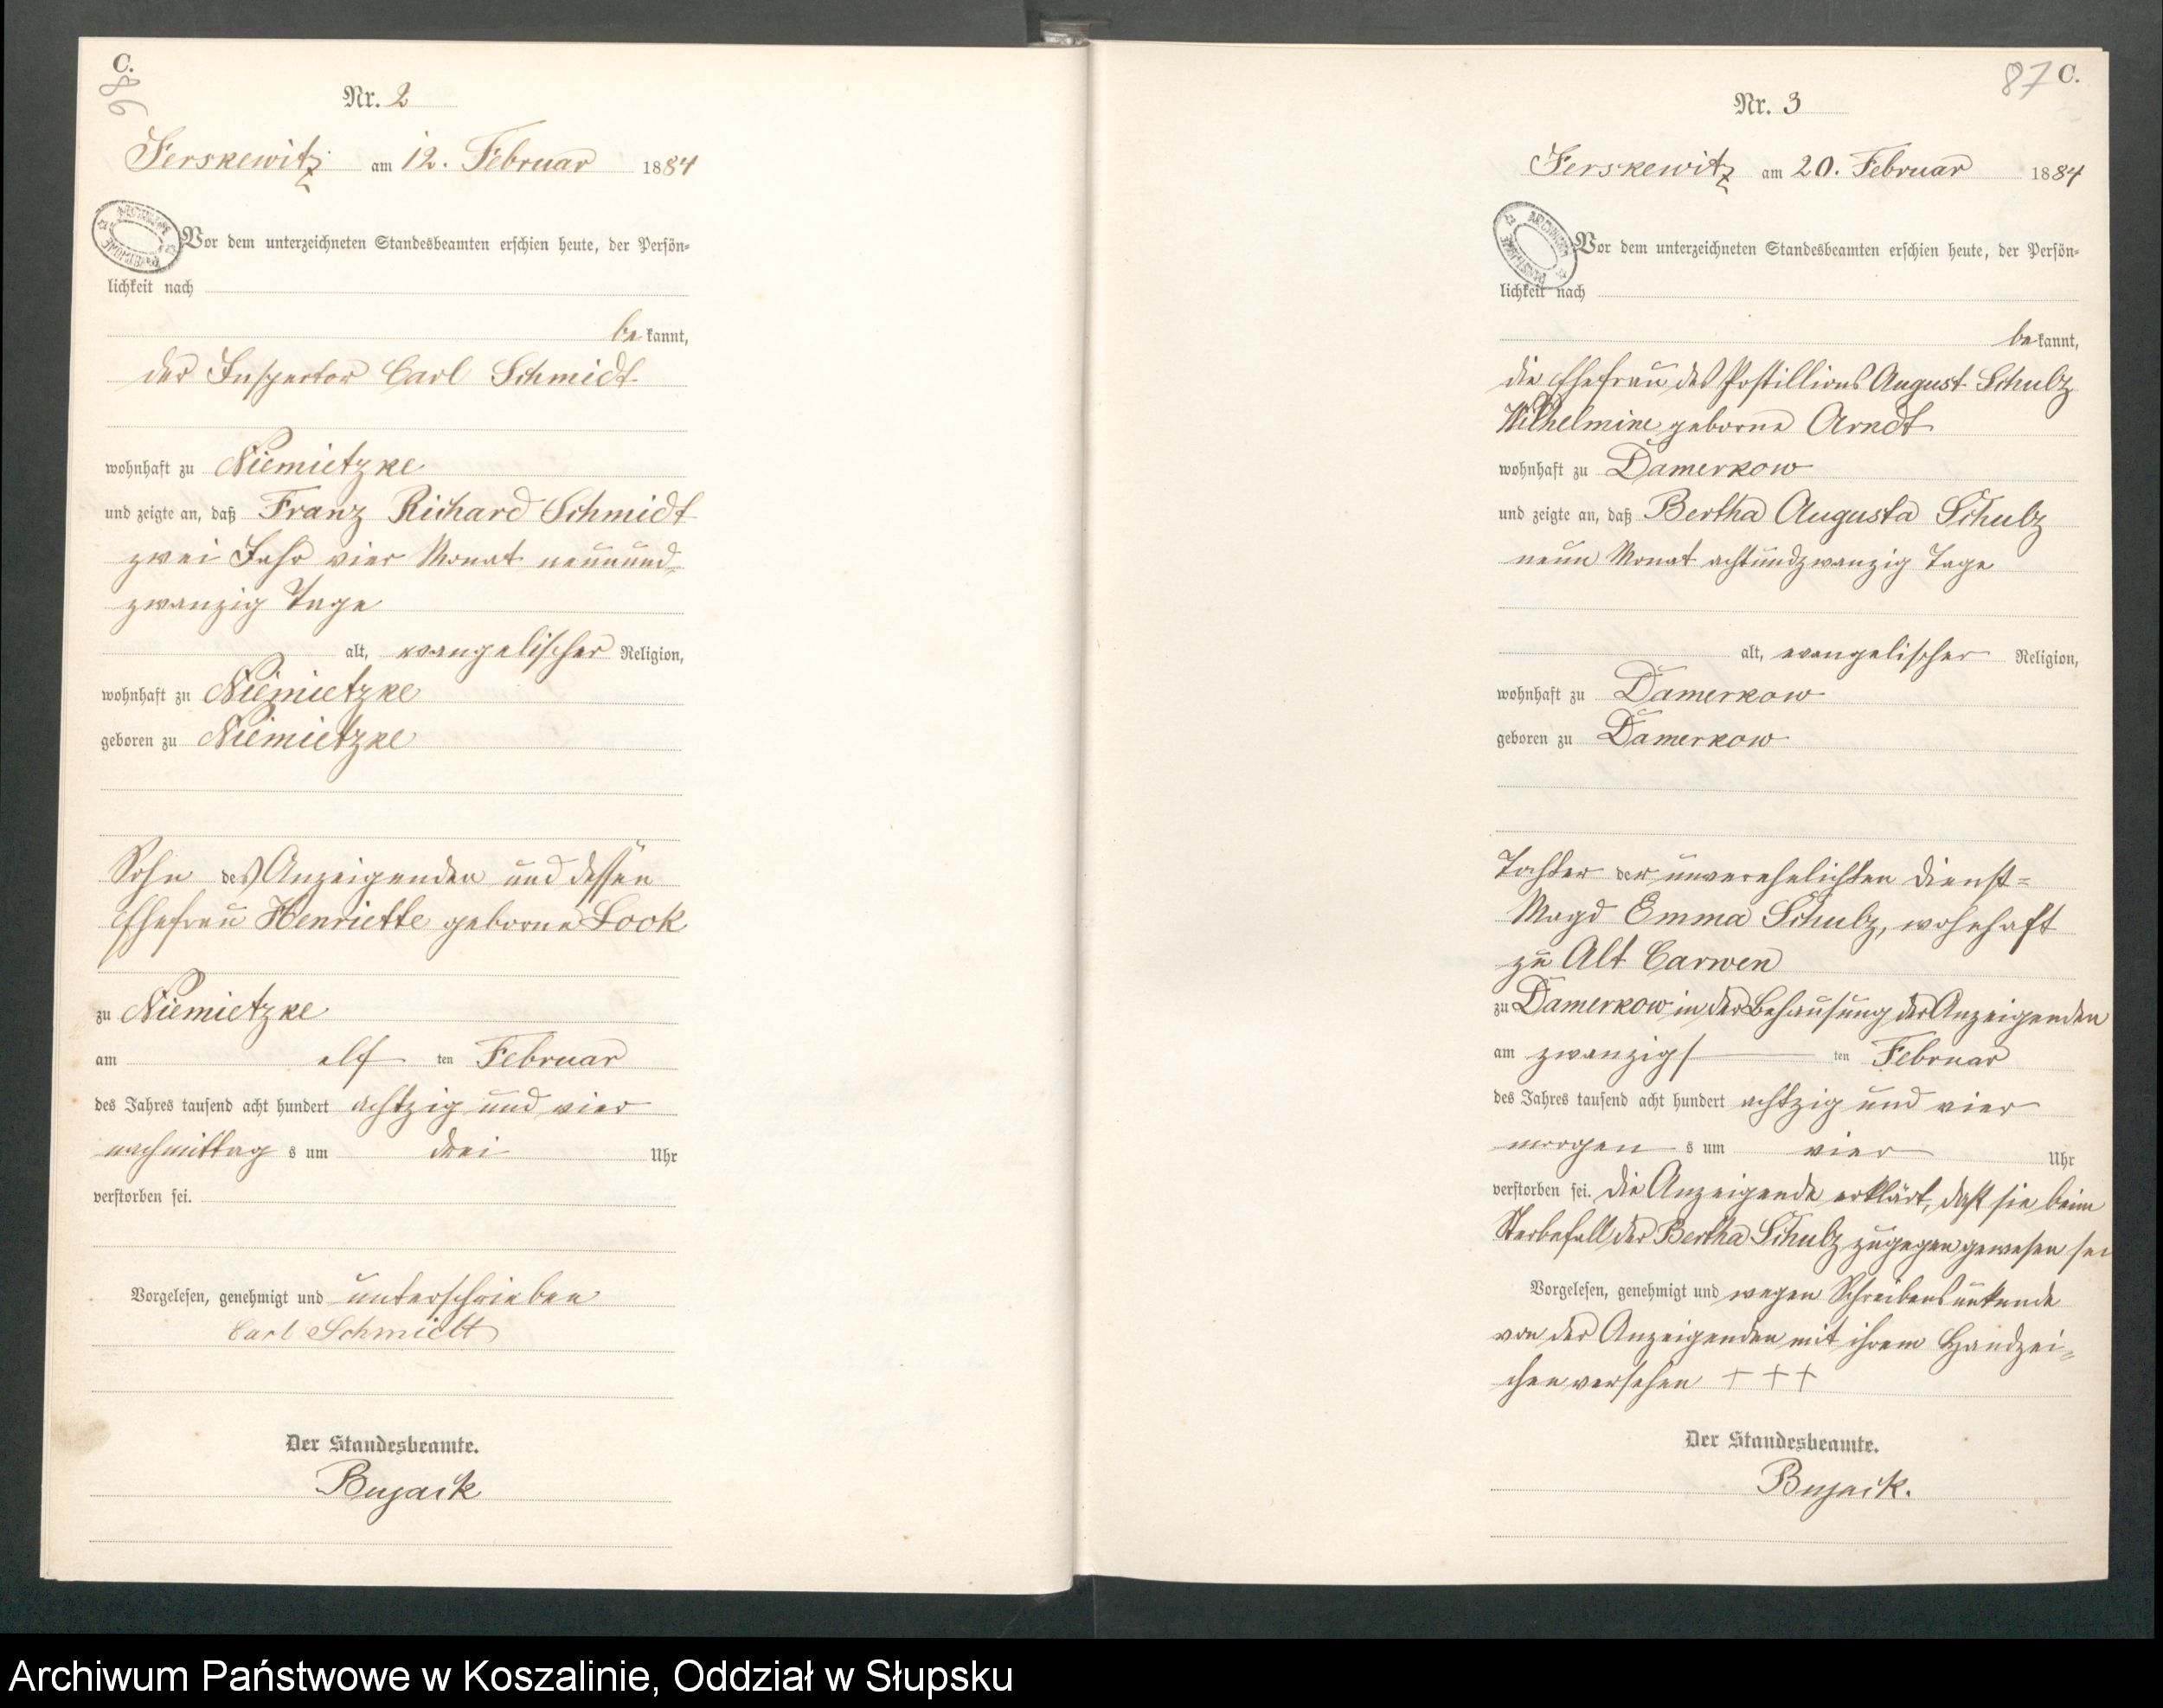 C.
86
Nr. 2
Jerskewitz am 12. Februar 1884
Vor dem unterzeichneten Standesbeamten erschien heute, der Persön-
lichkeit nach
be kannt,
der Inspector Carl Schmidt
wohnhaft zu Niemietzke
und zeigte an, daß Franz Richard Schmidt
zwei Jahr vier Monat neunund-
zwanzig Tage
alt, evangelischer Religion,
wohnhaft zu Niemietzke
geboren zu Niemietzke
Sohn des Anzeigenden und dessen
Ehefrau Henriette geborne Look
zu Niemietzke
am elf ten Februar
des Jahres tausend acht hundert achtzig und vier
nachmittag s um drei Uhr
verstorben sei.
Vorgelesen, genehmigt und unterschrieben
Carl Schmidt
Der Standesbeamte.
Bujack
87 C.
Nr. 3
Jerskewitz am 20. Februar 1884
Vor dem unterzeichneten Standesbeamten erschien heute, der Persön-
lichkeit nach
be kannt,
die Ehefrau des Postillions August Schulz
Wilhelmine geborne Arndt
wohnhaft zu Damerkow
und zeigte an, daß Bertha Augusta Schulz
neun Monat achtundzwanzig Tage
alt, evangelischer Religion,
wohnhaft zu Damerkow
geboren zu Damerkow
Tochter der unverehelichten Dienst-
Magd Emma Schulz, wohnhaft
zu Alt Carwen
zu Damerkow in der Behausung der Anzeigenden
am zwanzigs ten Februar
des Jahres tausend acht hundert achtzig und vier
morgen s um vier Uhr
verstorben sei. Die Anzeigende erklärt, daß sie beim
Sterbefall der Bertha Schulz zugegen gewesen sei
Vorgelesen, genehmigt und wegen Schreibensunkunde
von der Anzeigenden mit ihrem Handzei-
chen versehen + + +
Der Standesbeamte.
Bujack.
Archiwum Państwowe w Koszalinie, Oddział w Słupsku